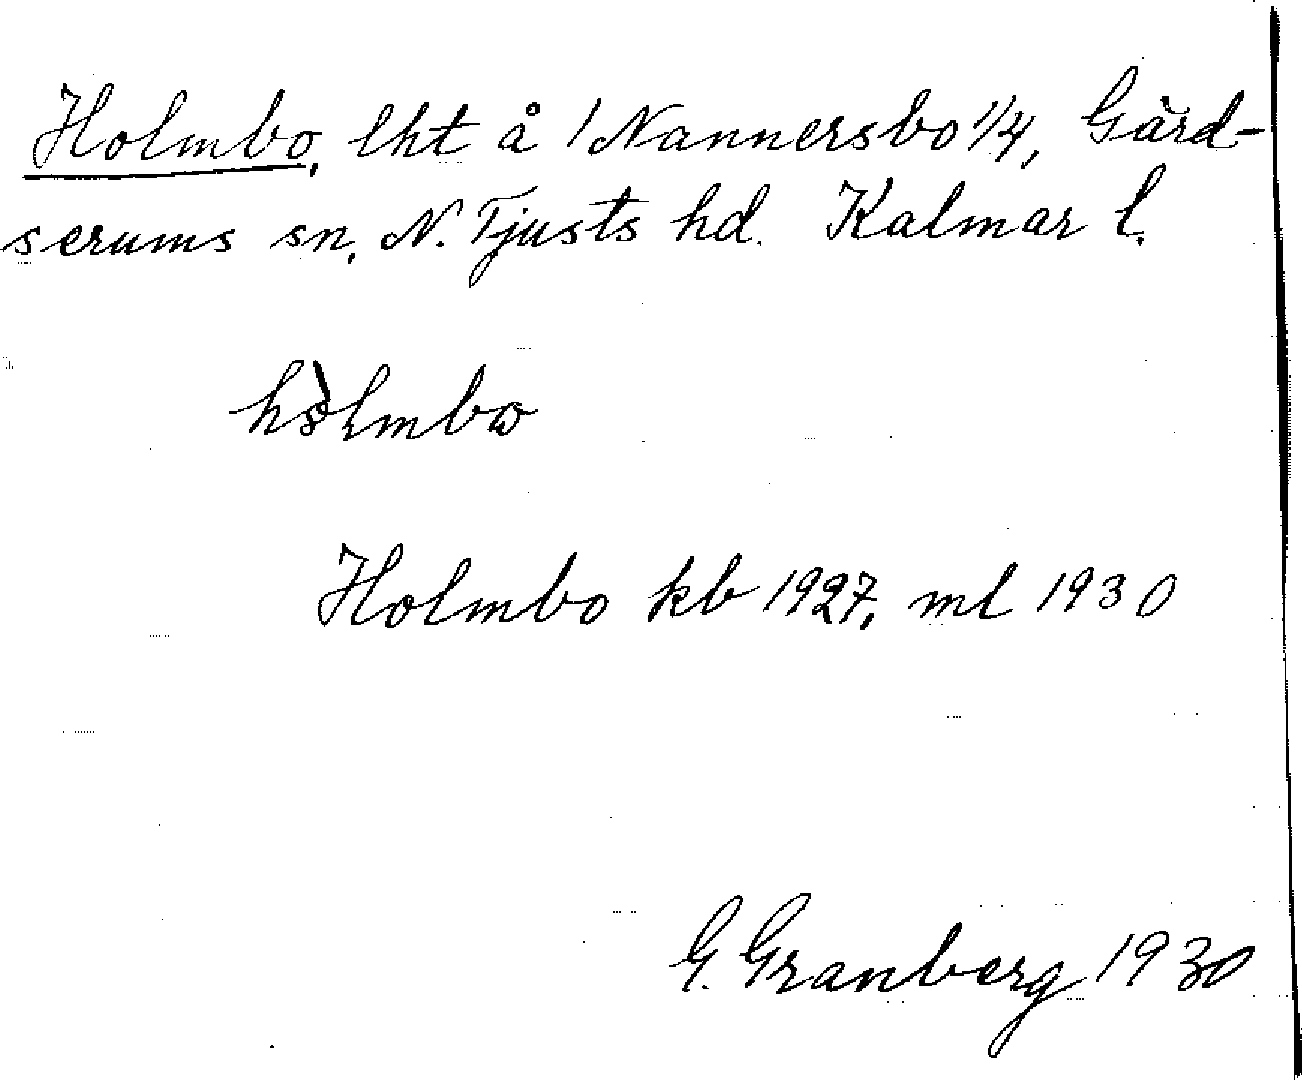 Holmbo, lht å /Nannersbo 1/4, Gärd-
serums sn, N. Tjusts hd. Kalmar l.
Holmbo kb 1927, ml 1930
G. Granberg 1930